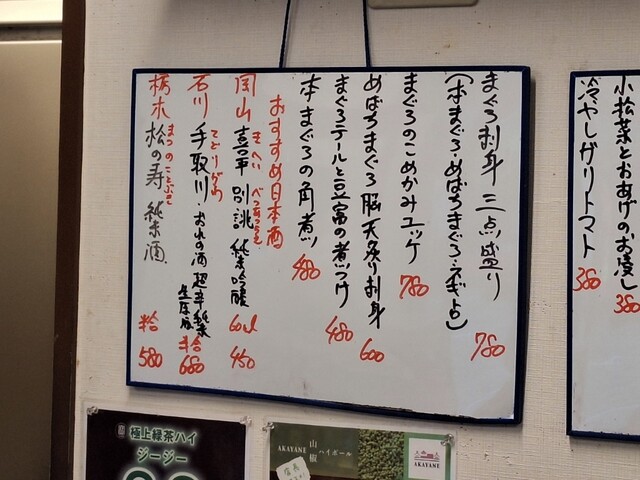 まぐろ刺身三点盛り 780
(本まぐろ・めばちまぐろ・ネギトロ)
まぐろのこめかみユッケ 780
めばちまぐろ脳天炙り刺身 600
まぐろテールと豆富の煮つけ 480
本まぐろの角煮 480
おすすめ日本酒
岡山 喜平 別誂 純米吟醸 60ml 450
きへい べつあつらえ
石川 手取川 おれの酒 超辛純米 半合 680
てどりがわ
生原酒
栃木 松の寿 純米酒 半合 580
まつのことぶき
小松菜とおあげのお浸し 380
冷やしガリトマト 380
極上緑茶ハイ
ジージー
山椒
AKAYANE ハイボール
AKAYANE
店長